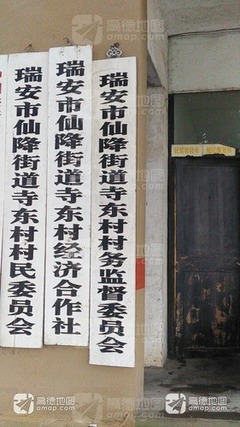 瑞安市仙降街道寺东村村民委员会
瑞安市仙降街道寺东村经济合作社
瑞安市仙降街道寺东村村务监督委员会
高德地图
amap.com